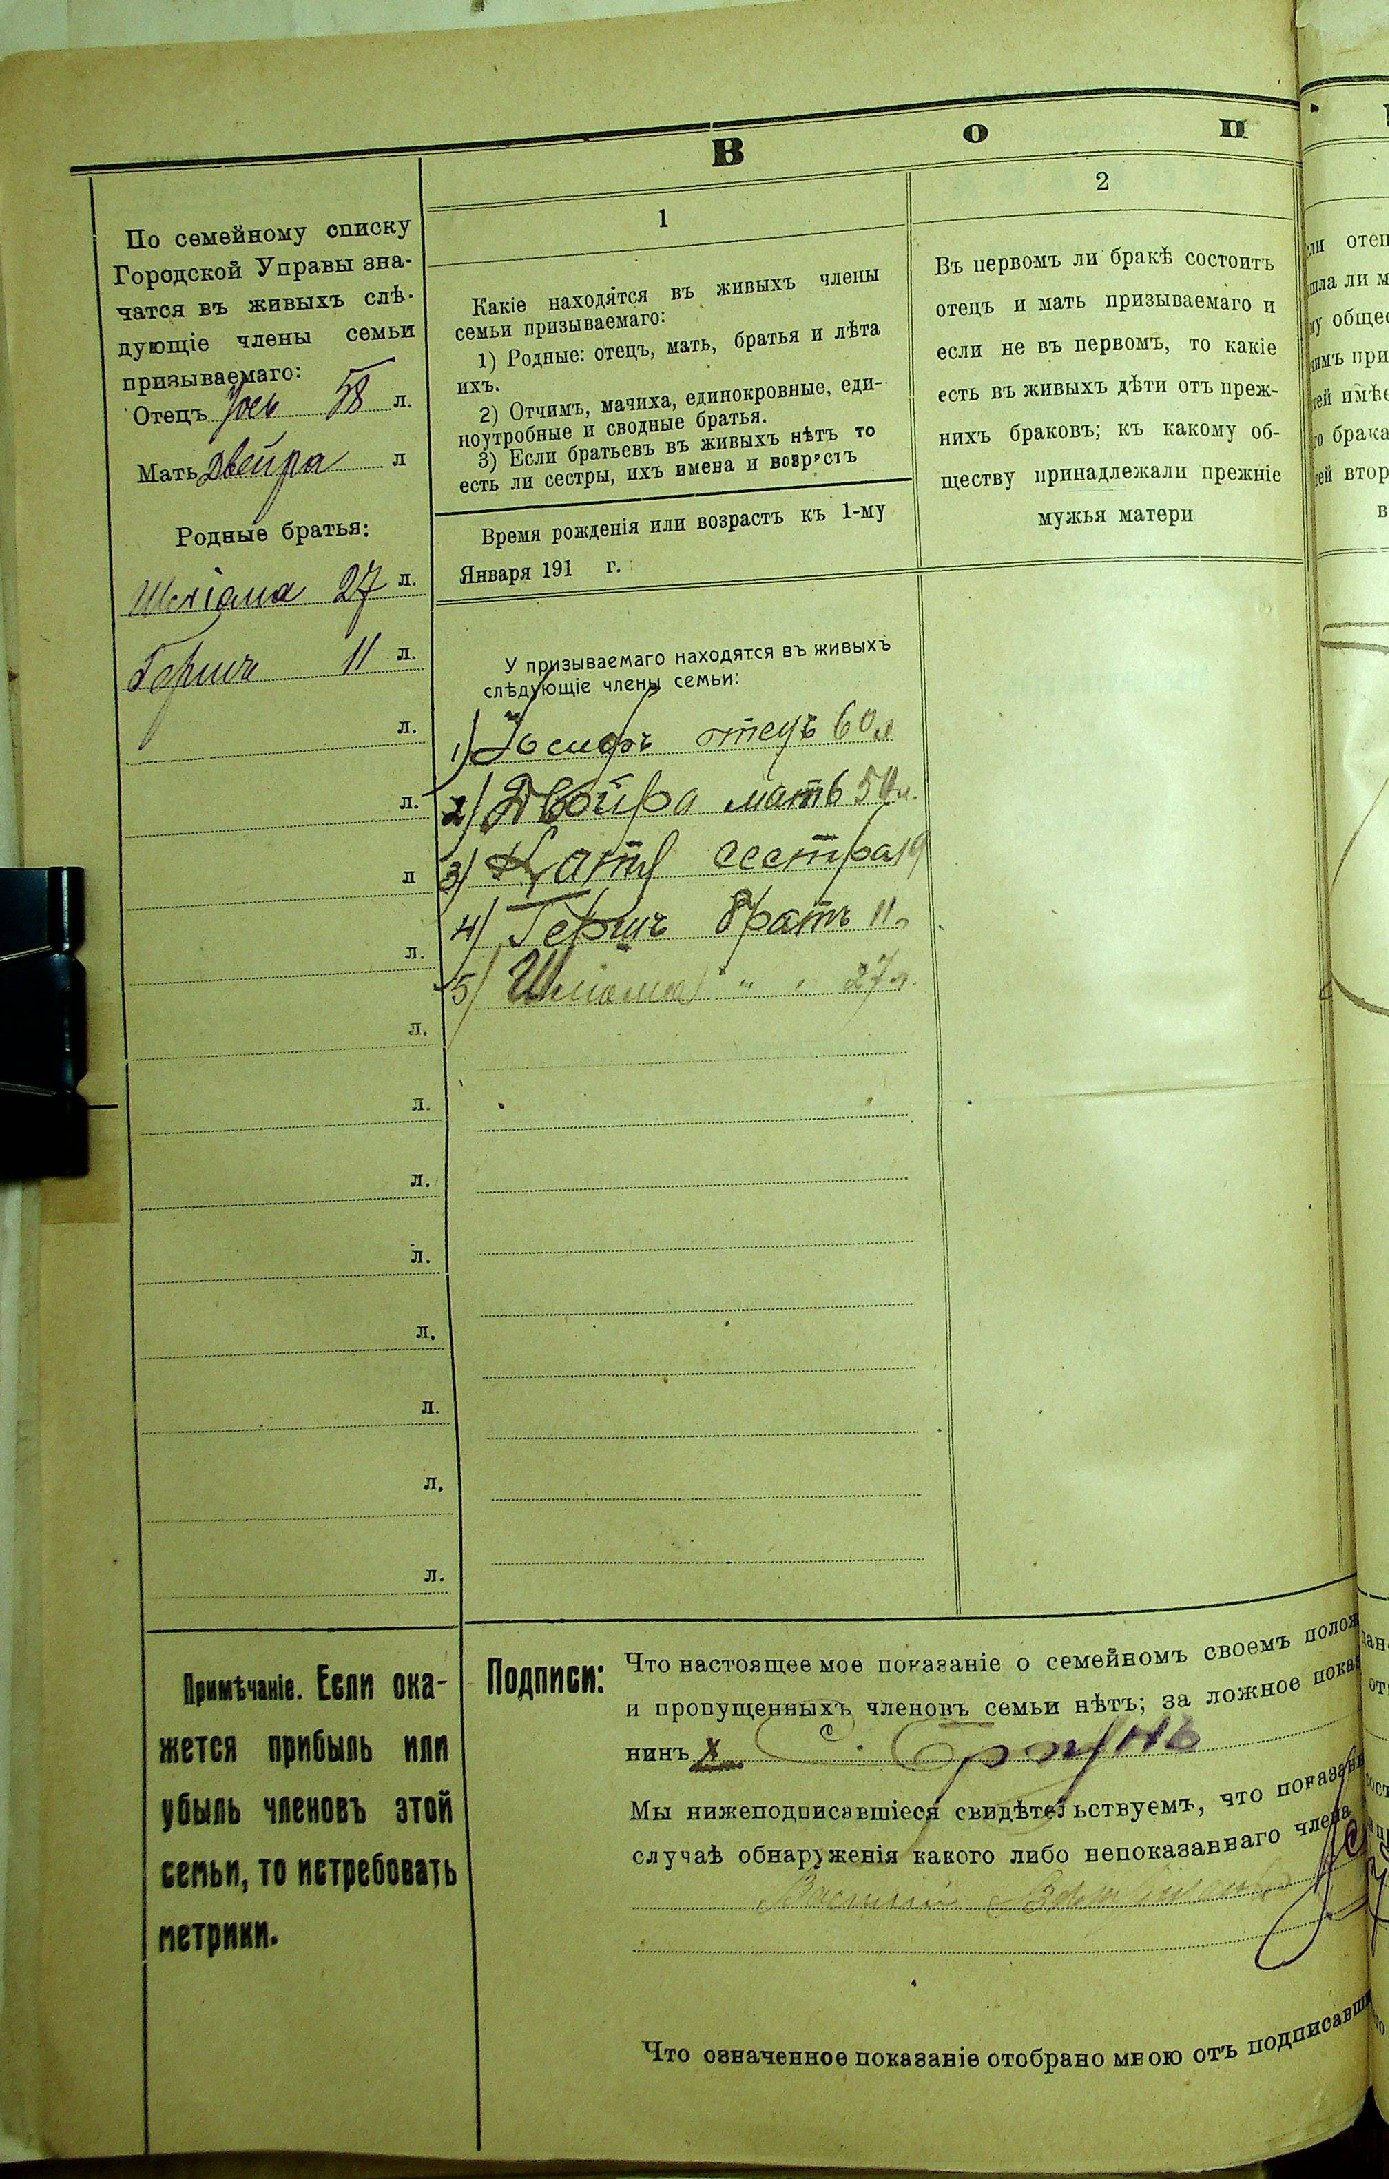 В о п
По семейному списку
Городской Управы зна-
чатся въ живыхъ слѣ-
дующіе члены семьи
призываемаго:
Отецъ Іось 58 л.
Мать Двейра л
Родные братья:
Шліома 27 л.
Гершъ 11 л.
л.
л.
л
л.
л.
л.
л.
л.
л.
л.
л.
л.
1
Какіе находятся въ живыхъ члены
семьи призываемаго:
1) Родные: отецъ, мать, братья и лѣта
ихъ.
2) Отчимъ, мачиха, единокровные, еди-
ноутробные и сводные братья.
3) Если братьевъ въ живыхъ нѣтъ то
есть ли сестры, ихъ имена и возрастъ
Время рожденія или возрастъ къ 1-му
Января 191 г.
У призываемаго находятся въ живыхъ
слѣдующіе члены семьи:
1) Іосифъ отецъ 60 л
2) Двойра мать 50 л.
3) сестра 19
4) Гершъ братъ 11
5) Шліома " " 27 л.
2
Въ первомъ ли бракѣ состоитъ
отецъ и мать призываемаго и
если не въ первомъ, то какіе
есть въ живыхъ дѣти отъ преж-
нихъ браковъ; къ какому об-
ществу принадлежали прежніе
мужья матери
Примѣчаніе. Если ока-
жется прибыль или
убыль членовъ этой
семьи, то истребовать
метрики.
Подписи:
Что настоящее мое показаніе о семейномъ своемъ полож
и пропущенныхъ членовъ семьи нѣтъ; за ложное показ
нинъ X
Мы нижеподписавшіеся свидѣтельствуемъ, что показан
случаѣ обнаруженія какого либо непоказаннаго члена
Василій
Что означенное показаніе отобрано мною отъ подписавши